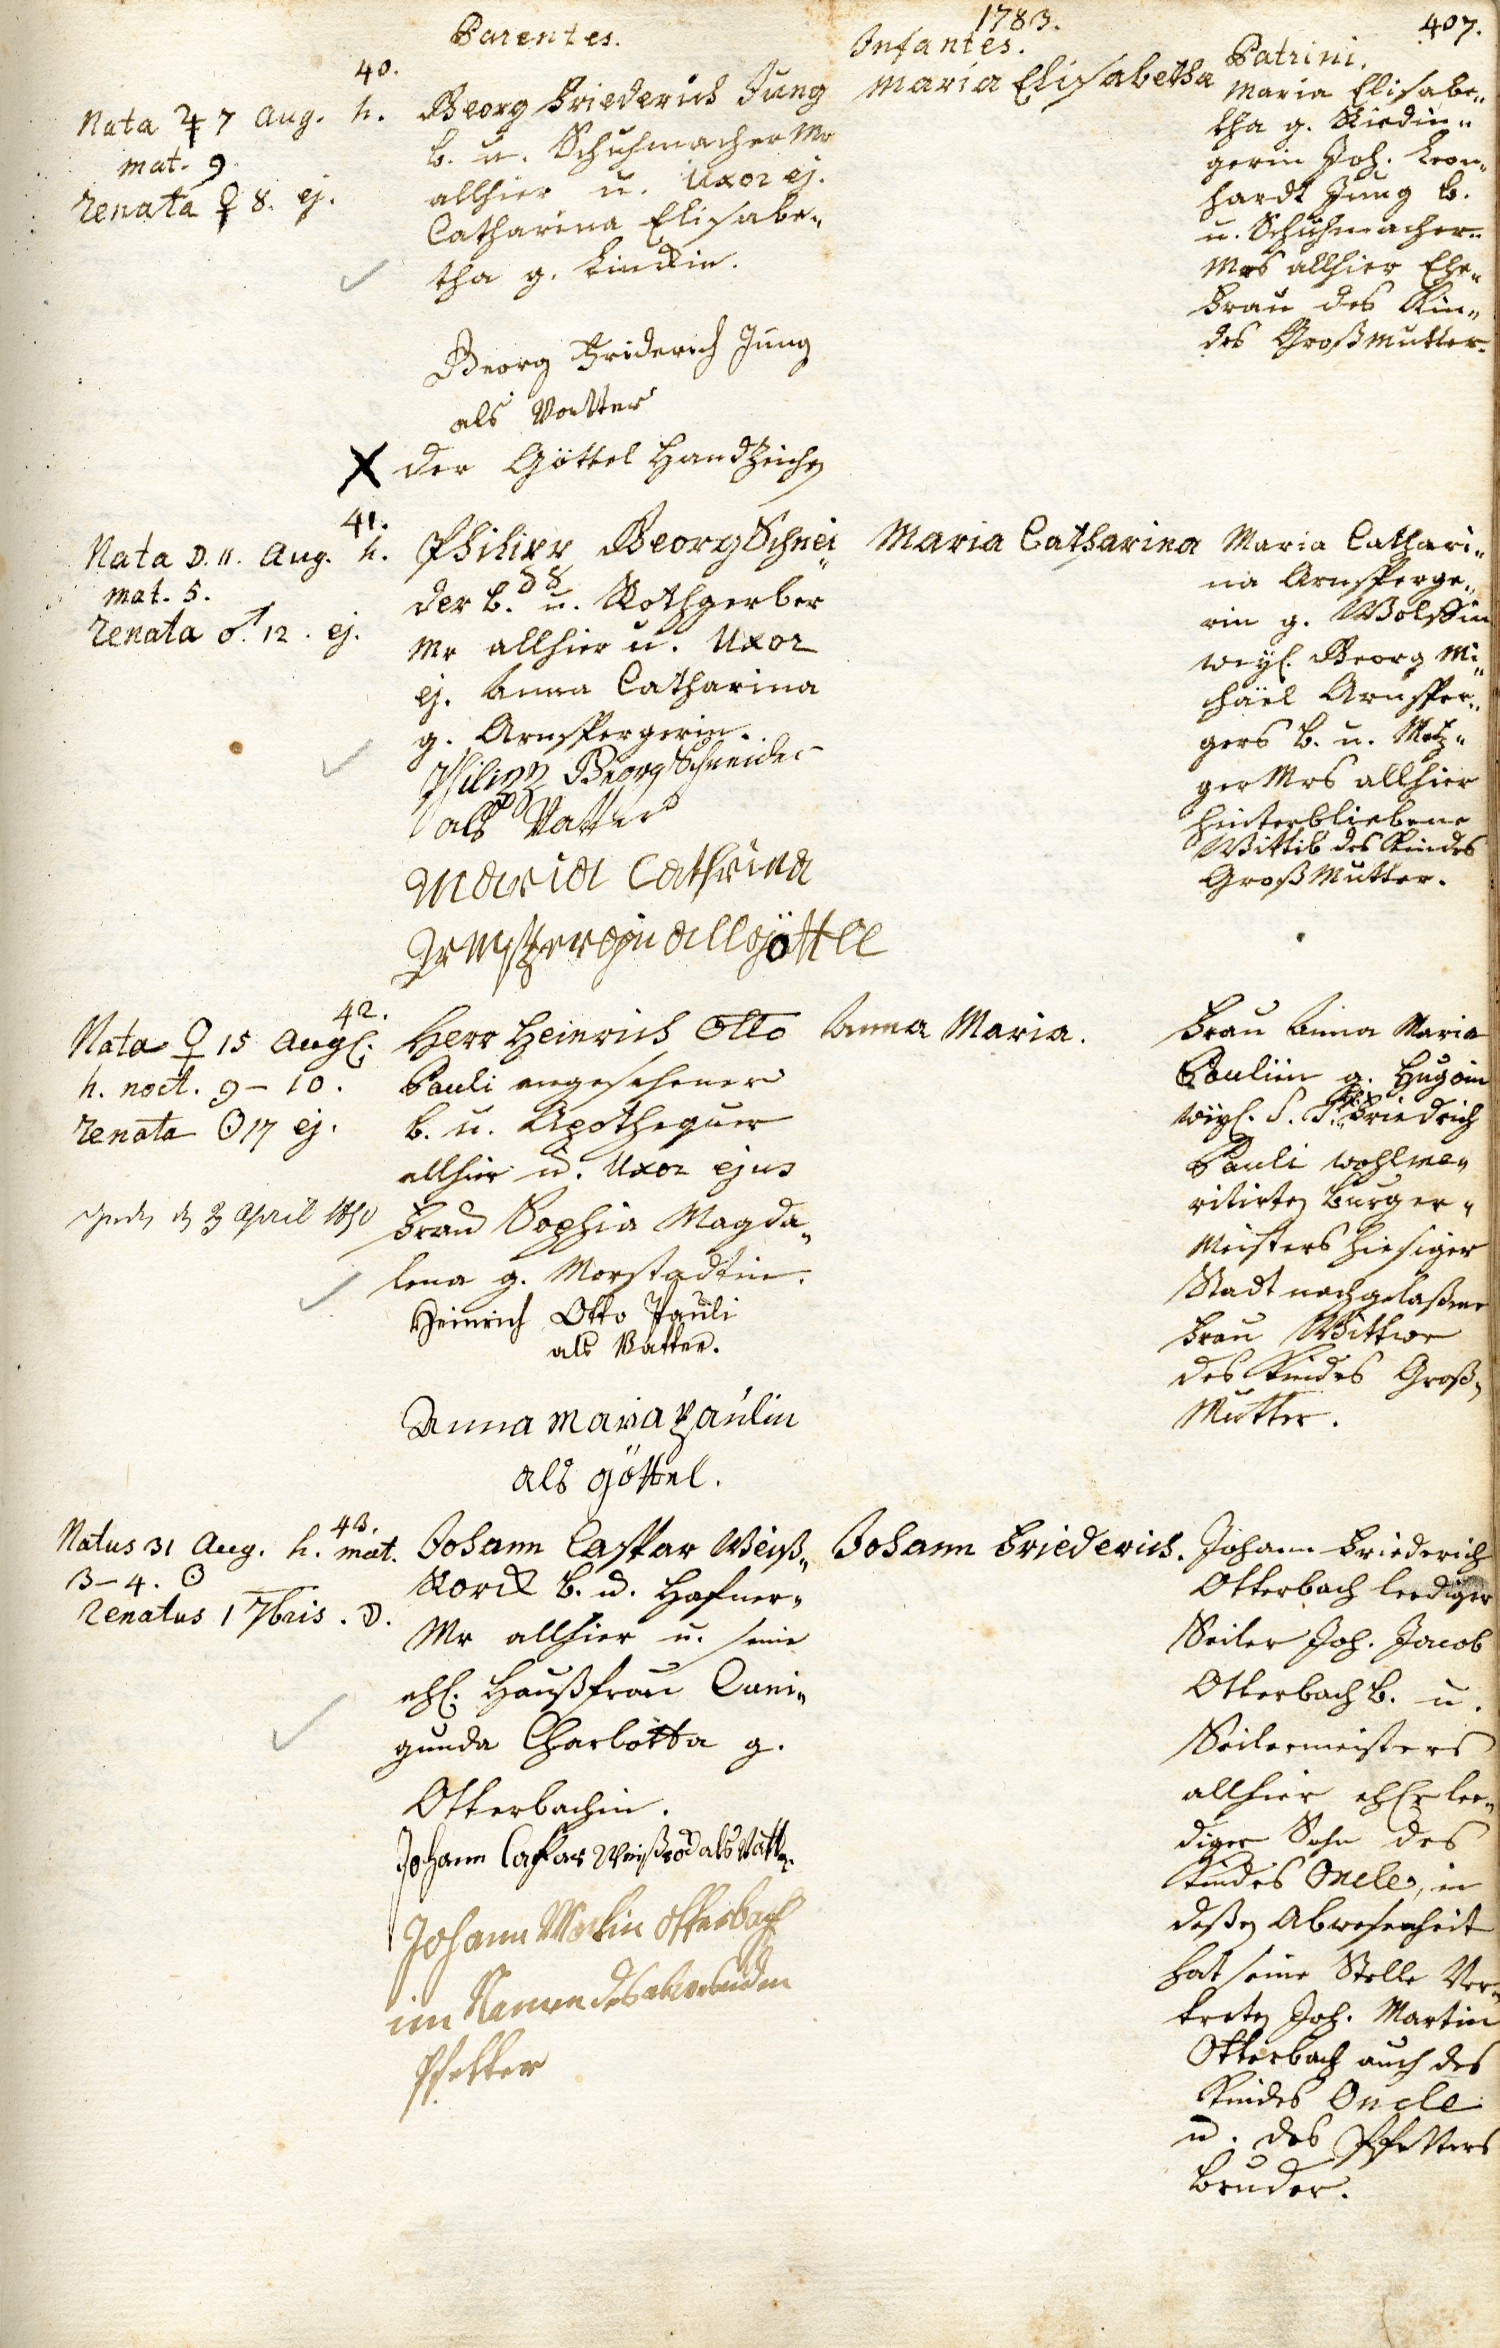 1783.
407.
Parentes.
Infantes.
Patrini.
40.
Nata ♃ 7 Aug. h.
mat. 9
renata ♀ 8. ej.
Georg Friederich Jung
b. u. Schuhmacher Mr
allhier u. Uxor ej.
Catharina Elisabe„
tha g. Linckin.
Georg Friderich Jung
als Vatter
X der Göttel Handzeichen
Maria Elisabetha
Maria Elisabe„
tha g. Riedin„
gerin Joh. Leon„
hardt Jung b.
u. Schuhmacher„
Mrs allhier Ehe„
Frau des Kin„
des Großmutter.
41.
Nata D. 11. Aug. h.
mat. 5.
renata ♂. 12. ej.
Philipp Georg Schnei„
der b. u. Rothgerber
Mr allhier u. Uxor
ej. Anna Catharina
g. Arnspergerin.
Philipp Georg Schneider
als Vatter
Maria Cathrina
Arnspergerin alls göttel
Maria Catharina
Maria Cathari„
na Arnsperge„
rin g. Wolffin
weyl. Georg Mi„
chäel Arnsper„
gers b. u. Metz„
ger Mrs allhier
hinterbliebene
Wittib des Kindes
Groß Mutter.
42.
Nata ♀ 15 Augl.
h. noct. 9 – 10.
renata ☉ 17 ej.
3 April 1850
Herr Heinrich Otto
Pauli angesehener
b. u. Apothequer
allhier u. Uxor ejus
Frau Sophia Magda„
lena g. Morstadtin.
Heinrich Otto Pauli
als Vatter.
Anna Maria Paulin
als göttel.
Anna Maria.
Frau Anna Maria
Paulin g. Hugoin
weyl. Friedrich
Pauli wohlme„
ritirten Burger„
Meisters hiesiger
Stadt nachgelaßene
Frau Wittwe
des Kindes Groß„
Mutter.
43.
Natus 31 Aug. h. mat.
3 – 4. ☉
renatus 1 7bris. D.
Johann Caspar Weiß„
Rock b. u. Hafner„
Mr allhier u. seine
ehl. Haußfrau Cuni„
gunda Charlotta g.
Otterbachin.
Johann Caspar Weißrod als Vatter
Johann Martin Otterbach
im Namen des abwesenden
Pfetter
Johann Friederich.
Johann Friederich
Otterbach leediger
Seiler Joh. Jacob
Otterbach b. u.
Seilermeisters
allhier ehl. lee„
diger Sohn des
Kindes Oncle, in
deßen Abwesenheit
hat seine Stelle Ver„
tretten Joh. Martin
Otterbach auch des
Kindes Oncle
u. des Pfetters
Bruder.